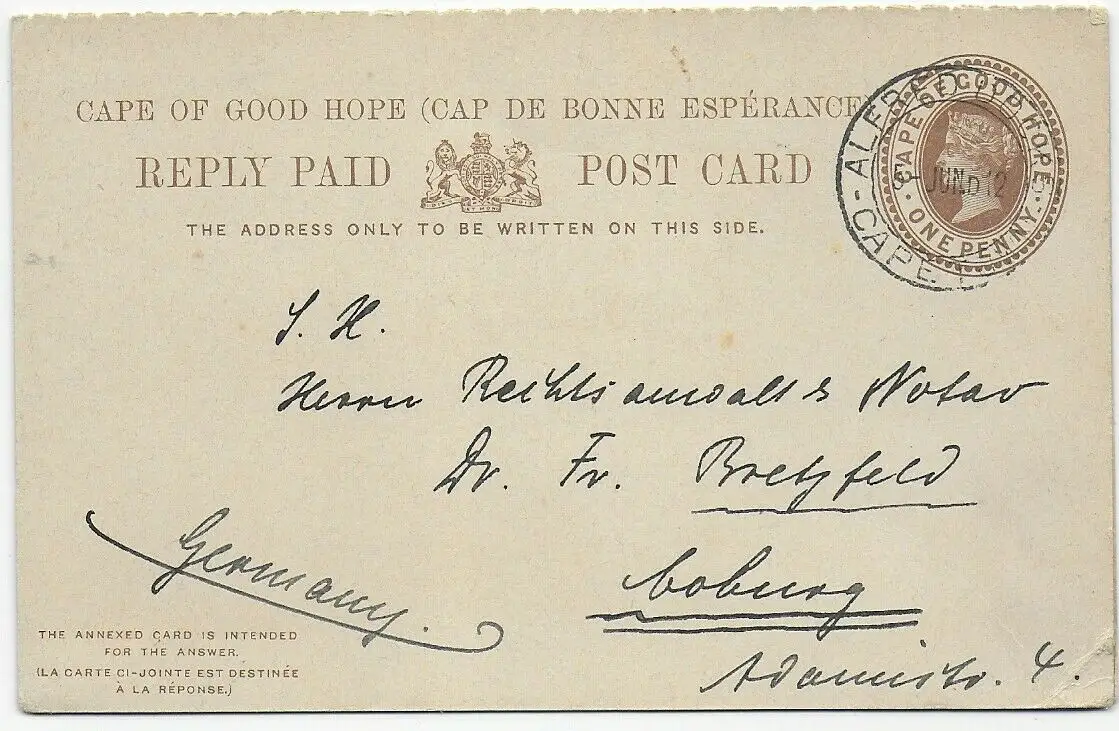 CAPE OF GOOD HOPE (CAP DE BONNE ESPÉRANCE)
REPLY PAID POST CARD
THE ADDRESS ONLY TO BE WRITTEN ON THIS SIDE.
CAPE OF GOOD HOPE
ONE PENNY
ALFRED
JUN 6 12
CAPE
S. H.
Herrn Rechtsanwalt & Notar
Dr. Fr. Bretzfeld
Coburg
Adamistr. 4.
Germany.
THE ANNEXED CARD IS INTENDED
FOR THE ANSWER.
(LA CARTE CI-JOINTE EST DESTINÉE
À LA RÉPONSE.)